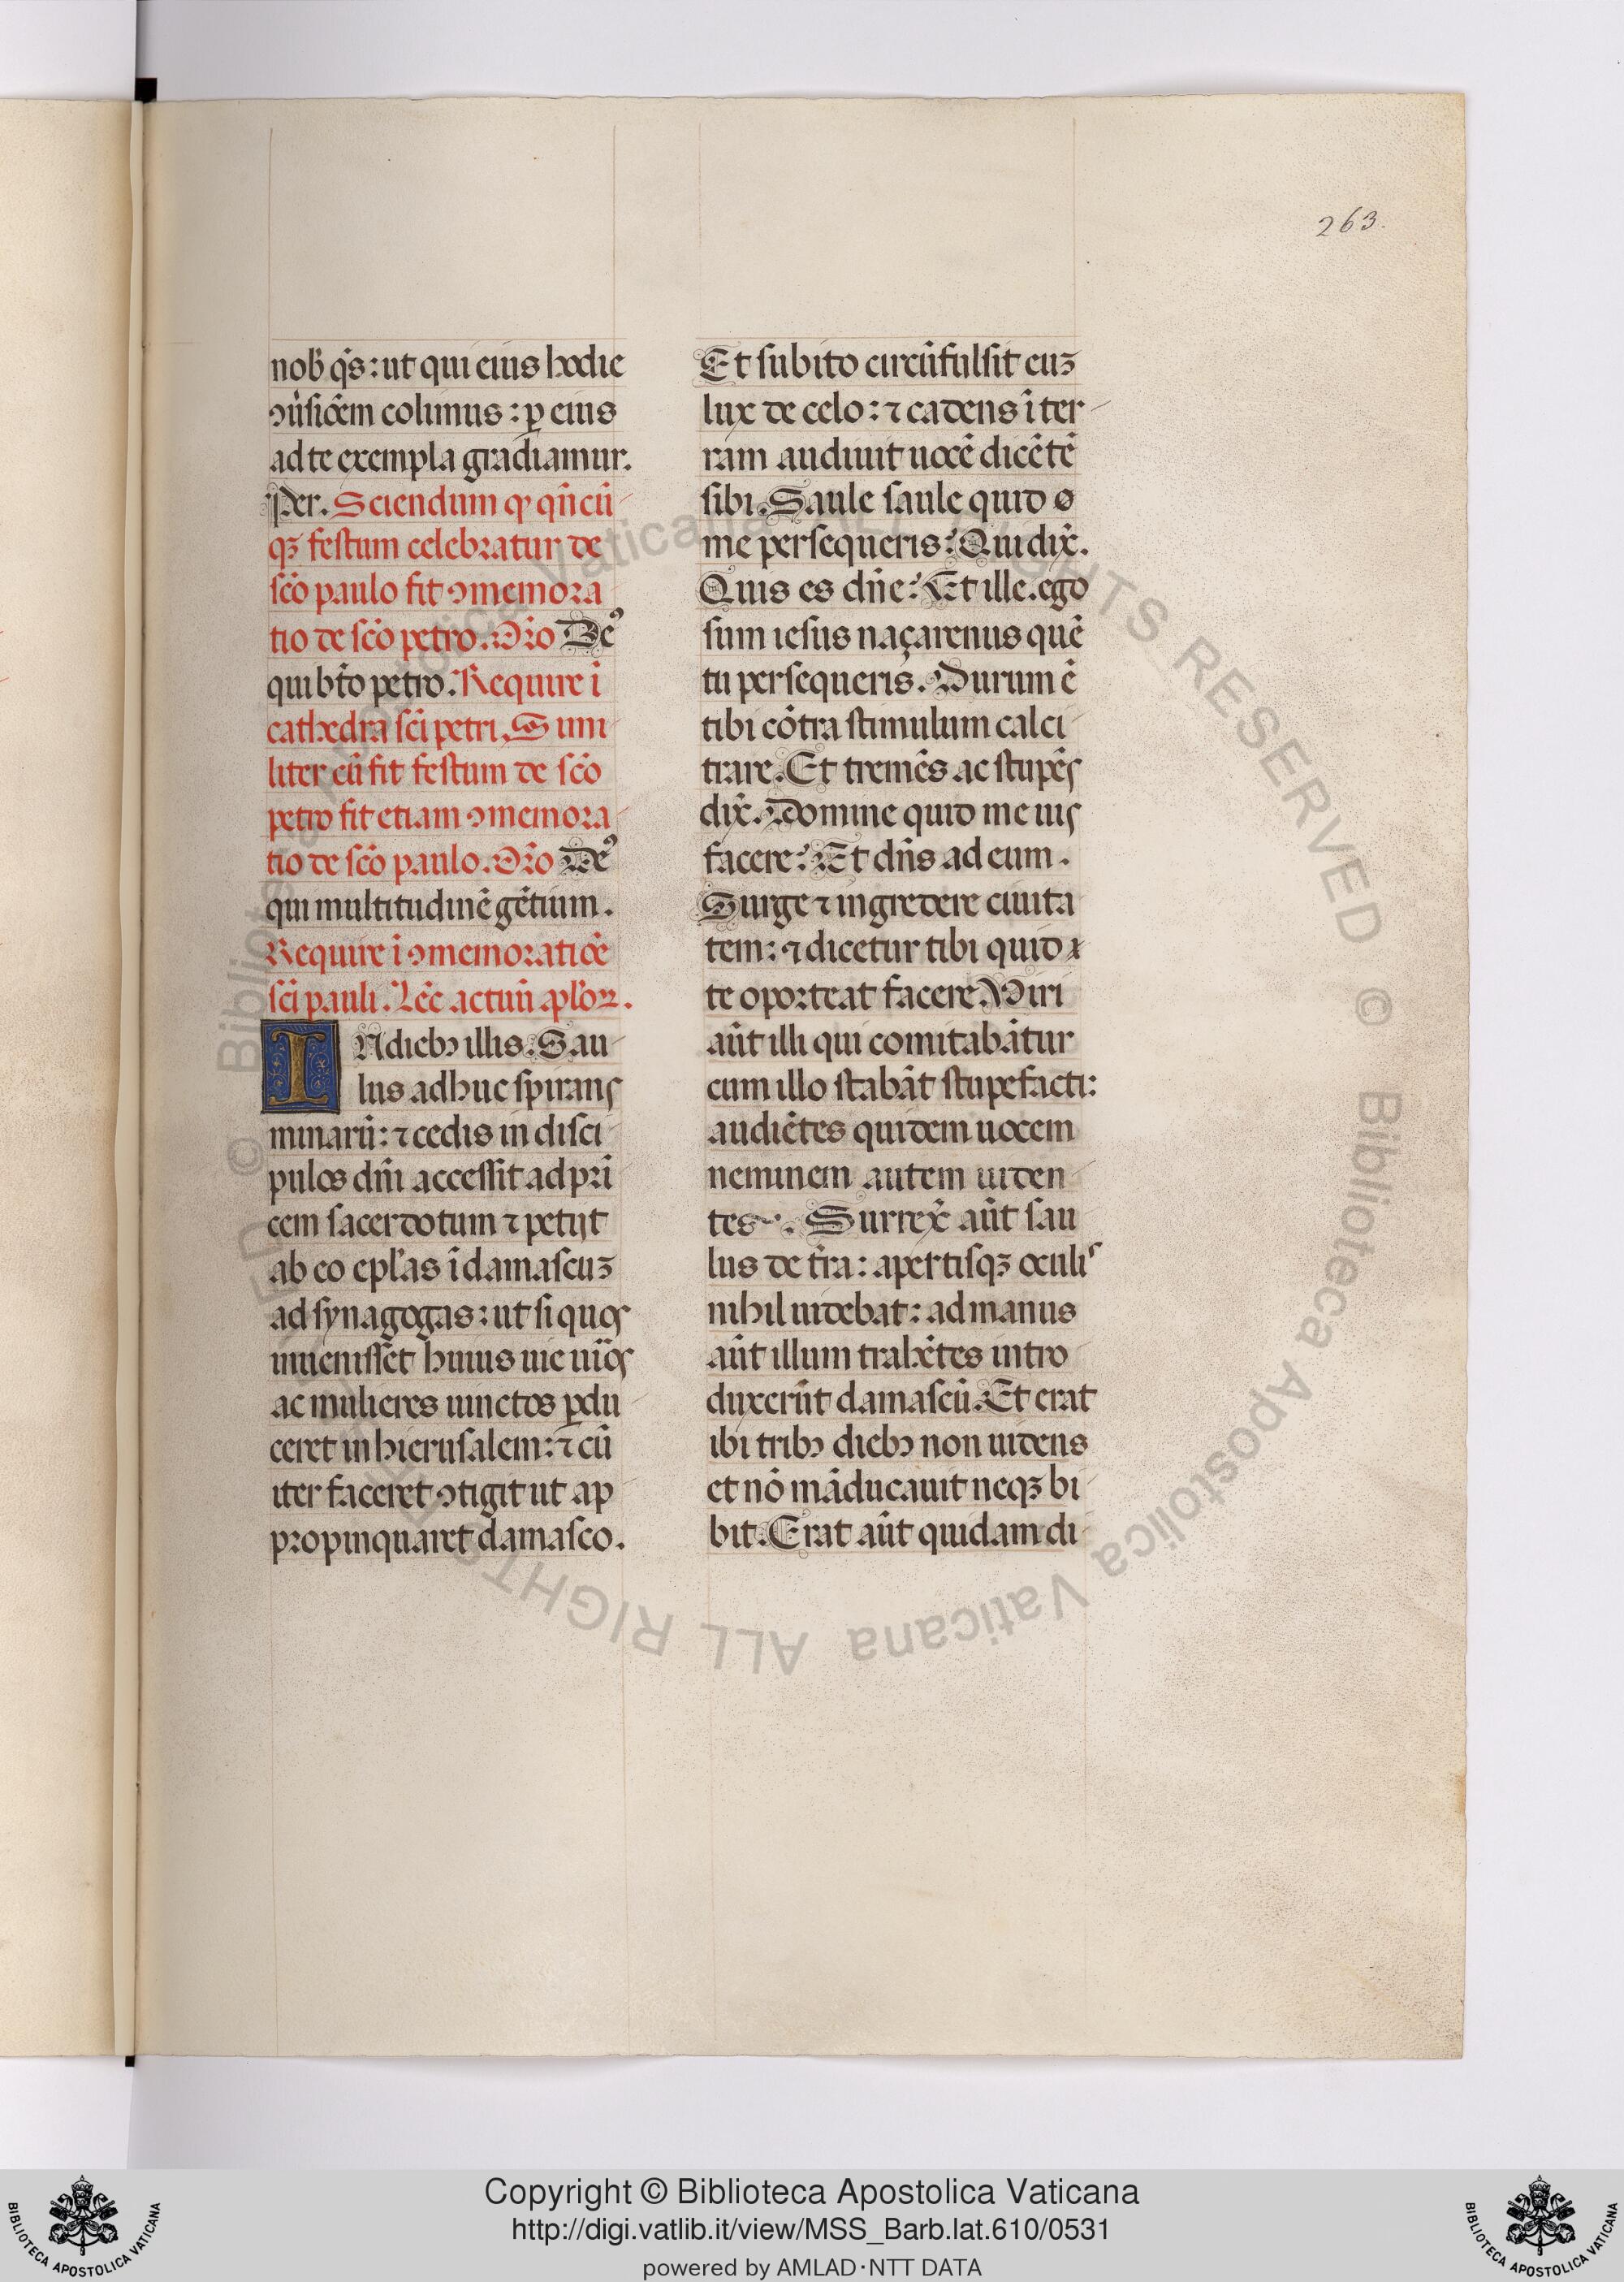 263.
nob̄ q̄s: ut qui eius hodie
ↄūsiōem colimus: ꝑ eius
ad te exempla gradiamur.
Per. Sciendum ꝙ qn̄cū
qꝫ festum celebratur de
sc̄o paulo fit ↄmemora
tio de sc̄o petro. Or̄o Deꝰ
qui bt̄o petro. Require ī
cathedra sc̄i petri. Simi
liter cū fit festum de sc̄o
petro fit etiam ↄmemora
tio de sc̄o paulo. Or̄o Deꝰ
qui multitudinē gētium.
Require ī ↄmemoratiōe
sc̄i pauli. Lc̄c actuū apl̄oꝝ.
IN diebꝫ illis. Sau
lus adhuc spirans
minarū: ⁊ cedis in disci
pulos dn̄i accessit ad pri
cem sacerdotum ⁊ petijt
ab eo epl̄as ī damascuꝫ
ad synagogas: ut si quos
inuenissēt huius uie uiros
ac mulieres uinctos ꝑdu
ceret in hierusalem: ⁊ cū
iter faceret ↄtigit ut ap
propinquaret damasco.
Et subito circūfulsit euꝫ
lux de celo: ⁊ cadens ī ter
ram audiuit uocē dicētē
sibi. Saule saule quid
me persequeris? Qui dix̄.
Quis es dn̄e? Et ille. ego
sum iesus naçarenus quē
tu persequeris. Durum ē
tibi cōtra stimulum calci
trare. Et tremēs ac stupēs
dix̄. Domine quid me uis
facere? Et dn̄s ad eum.
Surge ⁊ ingredere ciuita
tem: ⁊ dicetur tibi quid
te oporteat facere. Viri
aūt illi qui comitabātur
cum illo stabāt stupefacti:
audiētes quidem uocem
neminem autem uiden
tes. Surrex̄ aūt sau
lus de tr̄a: apertisqꝫ oculis
nihil uidebat: ad manus
aūt illum trahētes intro
duxerūt damascū. Et erat
ibi tribꝫ diebꝫ non uidens
et nō māducauit neqꝫ bi
bit. Erat aūt quidam di
© Biblioteca Apostolica Vaticana ALL RIGHTS RESERVED © Biblioteca Apostolica Vaticana ALL RIGHTS RESERVED
Copyright © Biblioteca Apostolica Vaticana
http://digi.vatlib.it/view/MSS_Barb.lat.610/0531
powered by AMLAD·NTT DATA
BIBLIOTECA APOSTOLICA VATICANA
BIBLIOTECA APOSTOLICA VATICANA